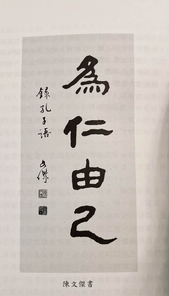 為仁由己
錄孔子語
文傑
陳文傑書